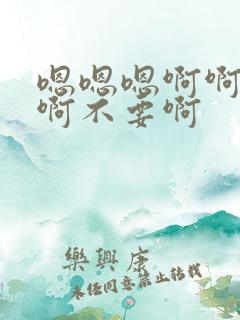 嗯嗯嗯啊啊
啊不要啊
樂興康
未经同意禁止转载